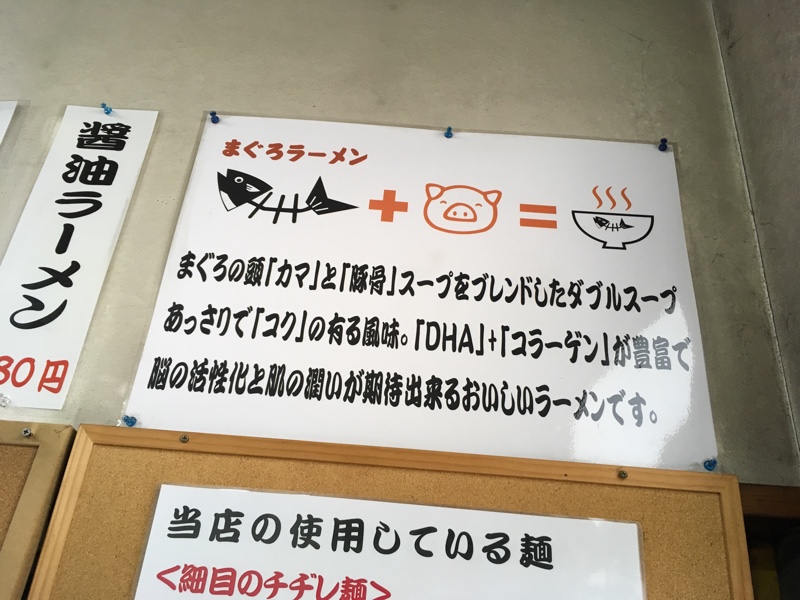 醤油ラーメン
80円
まぐろラーメン
まぐろの頭「カマ」と「豚骨」スープをブレンドしたダブルスープ
あっさりで「コク」の有る風味。「DHA」+「コラーゲン」が豊富で
脳の活性化と肌の潤いが期待出来るおいしいラーメンです。
当店の使用している麺
<細目のチヂレ麺>